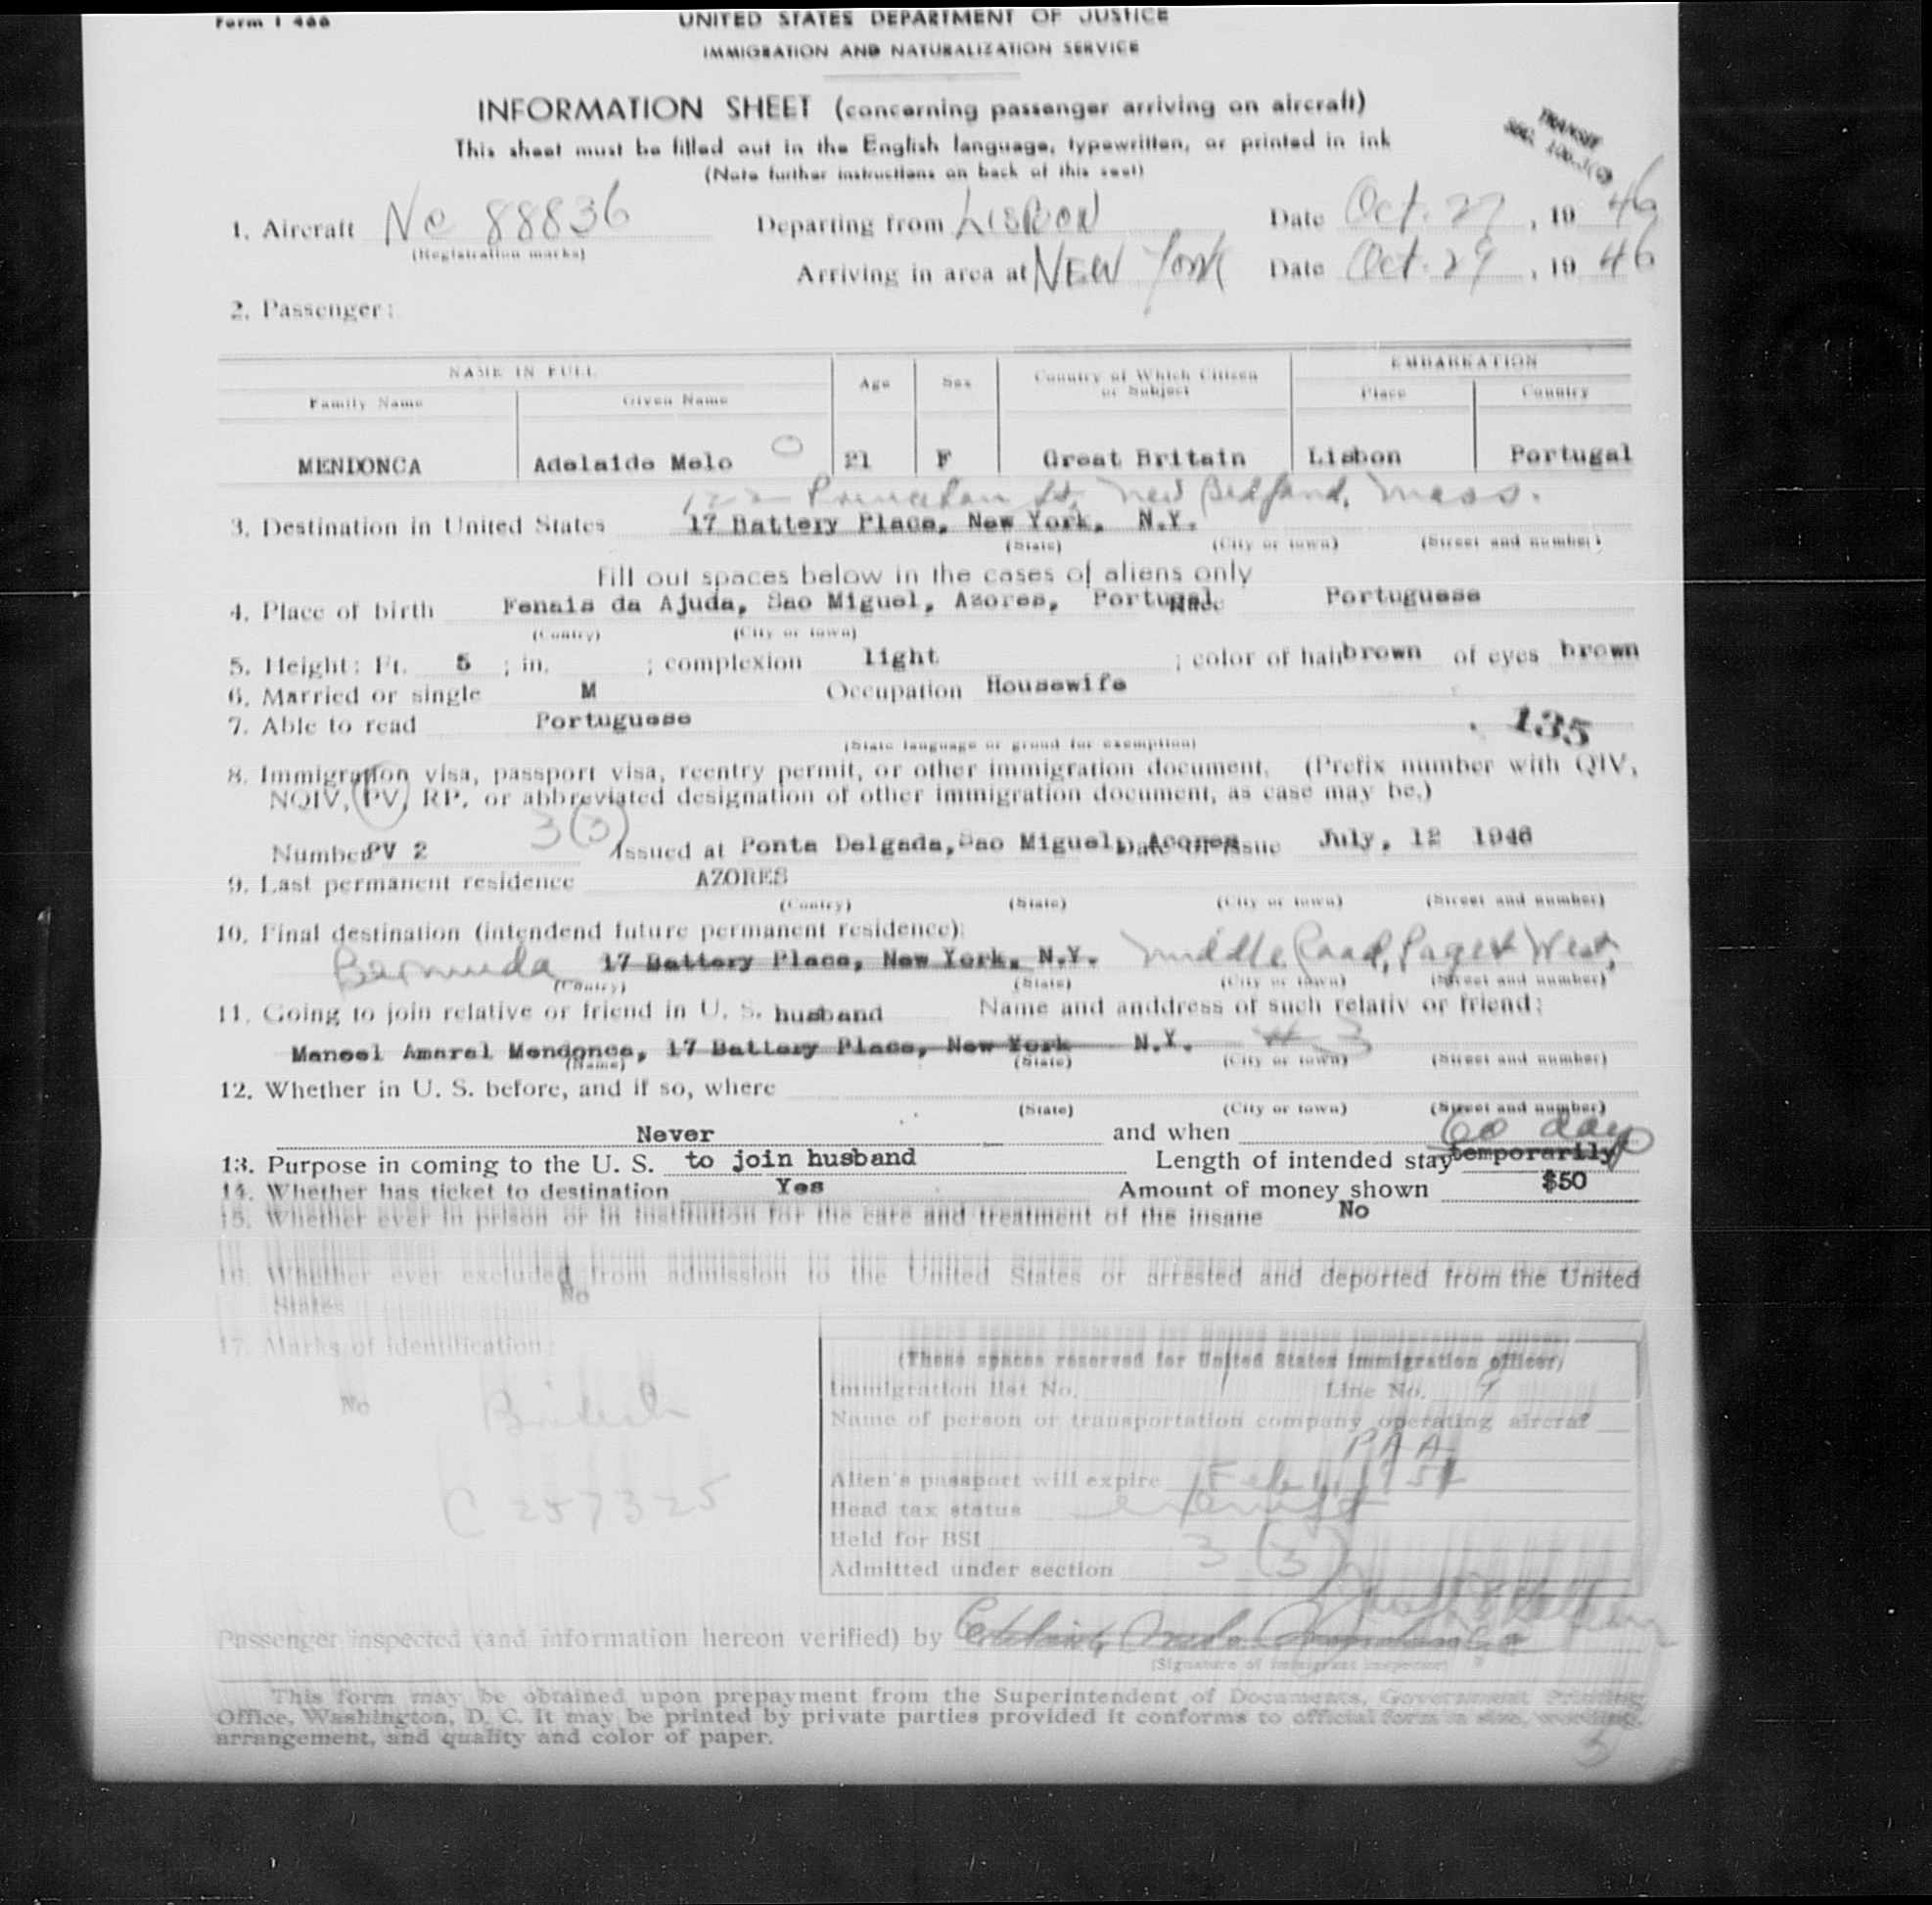 Form I 466
UNITED STATES DEPARTMENT OF JUSTICE
IMMIGRATION AND NATURALIZATION SERVICE
INFORMATION SHEET (concerning passenger arriving on aircraft)
This sheet must be filled out in the English language, typewritten, or printed in ink
(Note further instructions on back of this seet)
TRANSIT
1. Aircraft Nc 88836 Departing from LISBON Date Oct. 27, 19 46
(Registration marks)
Arriving in area at NEW York Date Oct. 29, 19 46
2. Passenger:
NAME IN FULL Age Sex Country of Which Citizen or Subject EMBARKATION
Family Name Given Name Place Country
MENDONCA Adelaide Melo 21 F Great Britain Lisbon Portugal
Princeton St, New Bedford, Mass.
3. Destination in United States 17 Battery Place, New York, N.Y.
(State) (City or town) (Street and number)
Fill out spaces below in the cases of aliens only
4. Place of birth Fenais da Ajuda, Sao Miguel, Azores, Portugal Race Portuguese
(Contry) (City or town)
5. Height: Ft. 5 ; in. ; complexion light ; color of hair brown of eyes brown
6. Married or single M Occupation Housewife
7. Able to read Portuguese 135
(State language or grund for exemption)
8. Immigration visa, passport visa, reentry permit, or other immigration document. (Prefix number with QIV,
NQIV, PV, RP, or abbreviated designation of other immigration document, as case may be.)
3(3)
Number PV 2 Issued at Ponta Delgada, Sao Miguel, Acores Date of issue July, 12 1946
9. Last permanent residence AZORES
(Contry) (State) (City or town) (Street and number)
10. Final destination (intendend future permanent residence):
Bermuda 17 Battery Place, New York, N.Y. Middle Road, Paget West,
(Contry) (State) (City or town) (Street and number)
11. Going to join relative or friend in U. S. husband Name and anddress of such relativ or friend:
Manoel Amaral Mendonca, 17 Battery Place, New York N.Y. # 3
(Name) (State) (City or town) (Street and number)
12. Whether in U. S. before, and if so, where
(State) (City or town) (Street and number)
Never and when 60 days
13. Purpose in coming to the U. S. to join husband Length of intended stay temporarily
14. Whether has ticket to destination Yes Amount of money shown $50
15. Whether ever in prison or in institution for the care and treatment of the insane No
16. Whether ever excluded from admission to the United States or arrested and deported from the United
States No
17. Marks of identification:
No British
C 257325
(These spaces reserved for United States immigration officer)
Immigration list No. 1 Line No. 9
Name of person or transportation company operating aircraf
PAA
Alien's passport will expire Feb 1951
Head tax status exempt
Held for BSI
Admitted under section 3 (3)
Passenger inspected (and information hereon verified) by
(Signature of immigrant inspector)
This form may be obtained upon prepayment from the Superintendent of Documents, Government Printing
Office, Washington, D. C. It may be printed by private parties provided it conforms to official form in size, wording,
arrangement, and quality and color of paper.
5